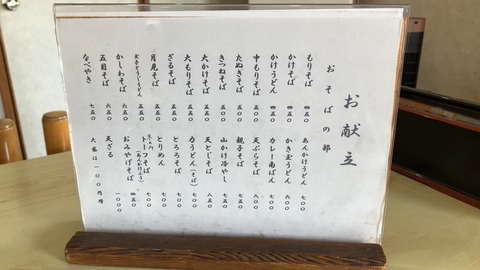 お献立
おそばの部
もりそば 四五〇
かけそば 四五〇
かけうどん 四五〇
中もりそば 五五〇
たぬきそば 五五〇
きつねそば 五五〇
大かけそば 五五〇
大もりそば 五五〇
ざるそば 五五〇
月見そば 五五〇
かしわそば 六五〇
五目そば 六五〇
なべやき 七五〇
あんかけうどん 七〇〇
かき玉うどん 六〇〇
カレー南ばん 七〇〇
天ぷらそば 八〇〇
親子そば 七〇〇
山かけ冷やし 七五〇
天とじそば 八五〇
力うどん(そば) 七〇〇
とろろそば 七〇〇
とりめん 七〇〇
トーフそば(あんかけふう) 七〇〇
おみやげそば 四五〇
天ざる 一〇〇〇
大盛は一〇〇円増